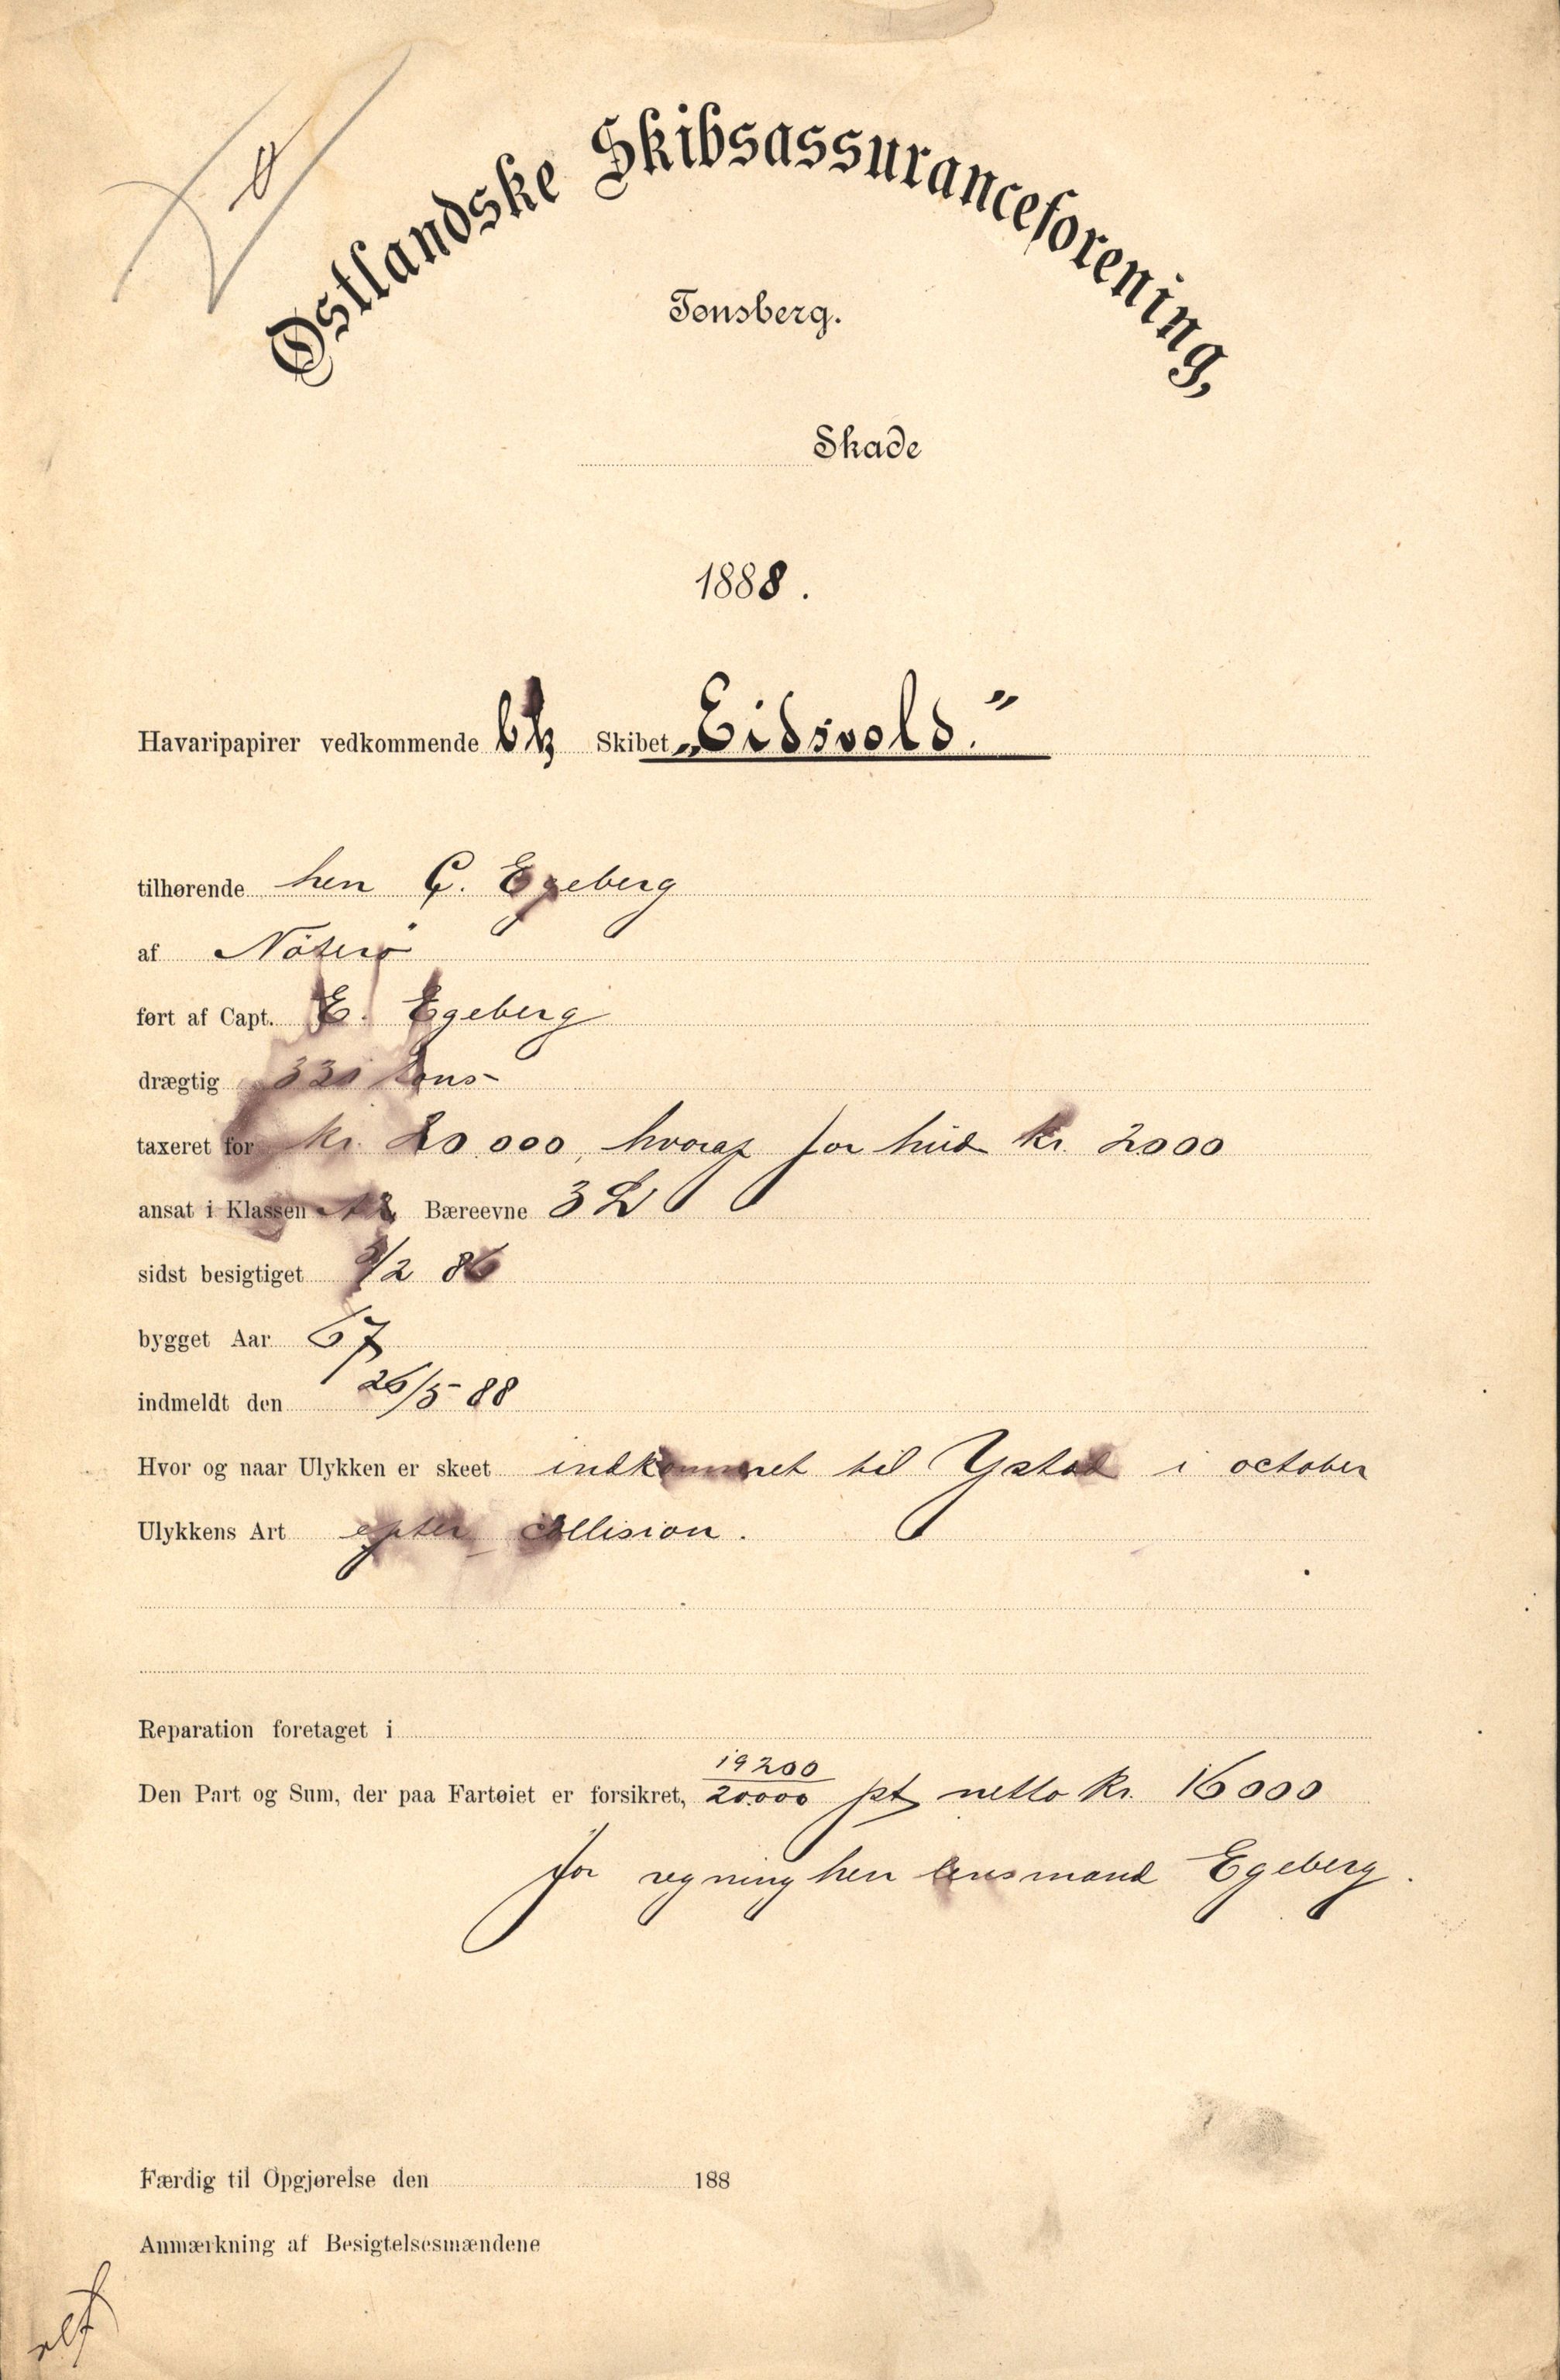 Østlandske Skibsassuranceforening,
Tønsberg.
Skade
1888.
Havaripapirer vedkommende bk Skibet „Eidsvold."
tilhørende herr G. Egeberg
af Nøterø
ført af Capt. E. Egeberg
drægtig tons
taxeret for kr. 20.000, hvoraf for hud kr. 2000
ansat i Klassen Bæreevne 3 L
sidst besigtiget /2 86
bygget Aar 67
indmeldt den 26/5 88
Hvor og naar Ulykken er skeet indkommet til Ystad i october
Ulykkens Art efter collision.
Reparation foretaget i
Den Part og Sum, der paa Fartøiet er forsikret, 19200/20.000 pt netto kr. 16000
for regning herr lensmand Egeberg.
Færdig til Opgjørelse den 188
Anmærkning af Besigtelsesmændene